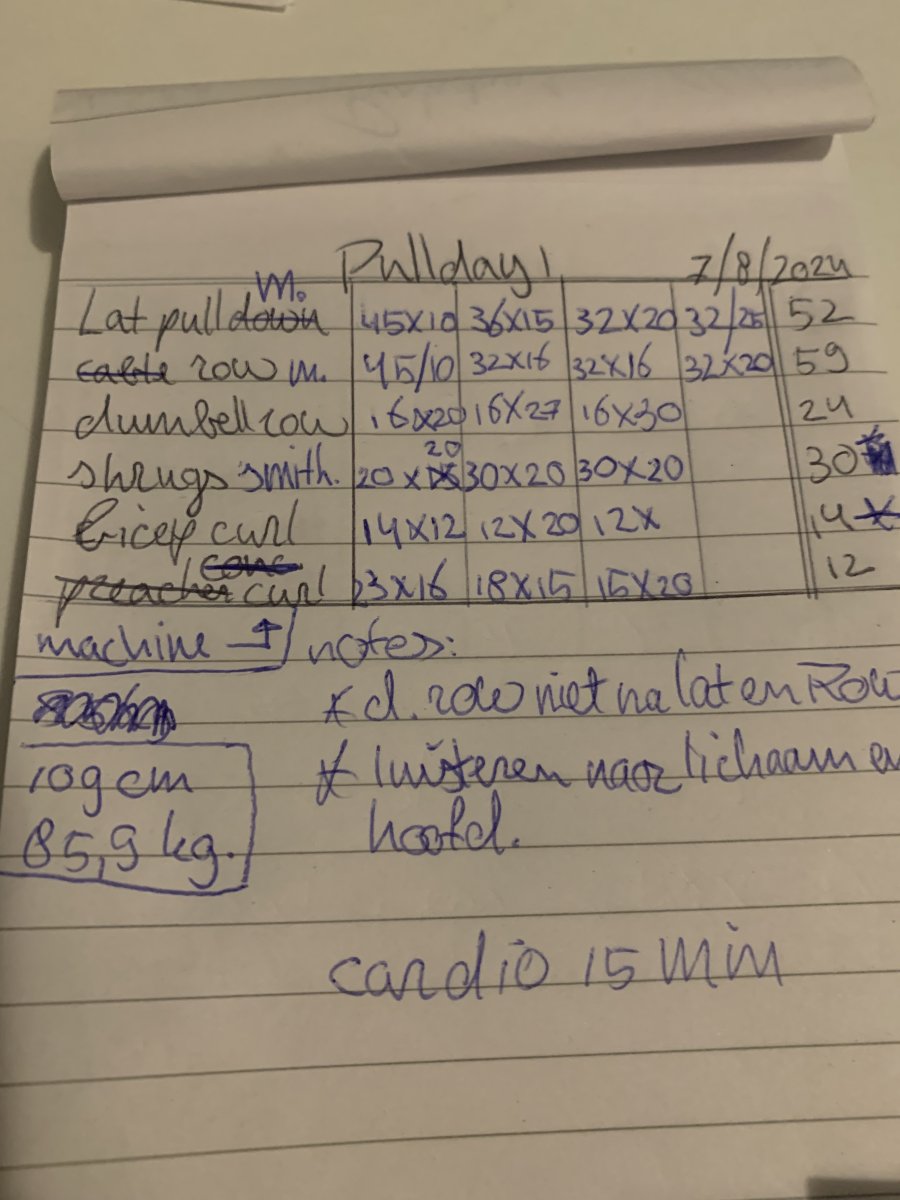 Pullday 7/8/2024
Lat pull down m. 45x10 36x15 32x20 32/25 52
cable row m. 45/10 32x16 32x16 32x20 59
dumbell row 16x20 16x27 16x30 24
shrugs smith. 20x 20 30x20 30x20 30
bicep curl 14x12 12x20 12x 14
preacher curl 23x16 18x15 15x20 12
machine notes:
* d. row niet na lat en Row
* luisteren naar lichaam en
hoofd.
109 cm
85,9 kg.
cardio 15 min